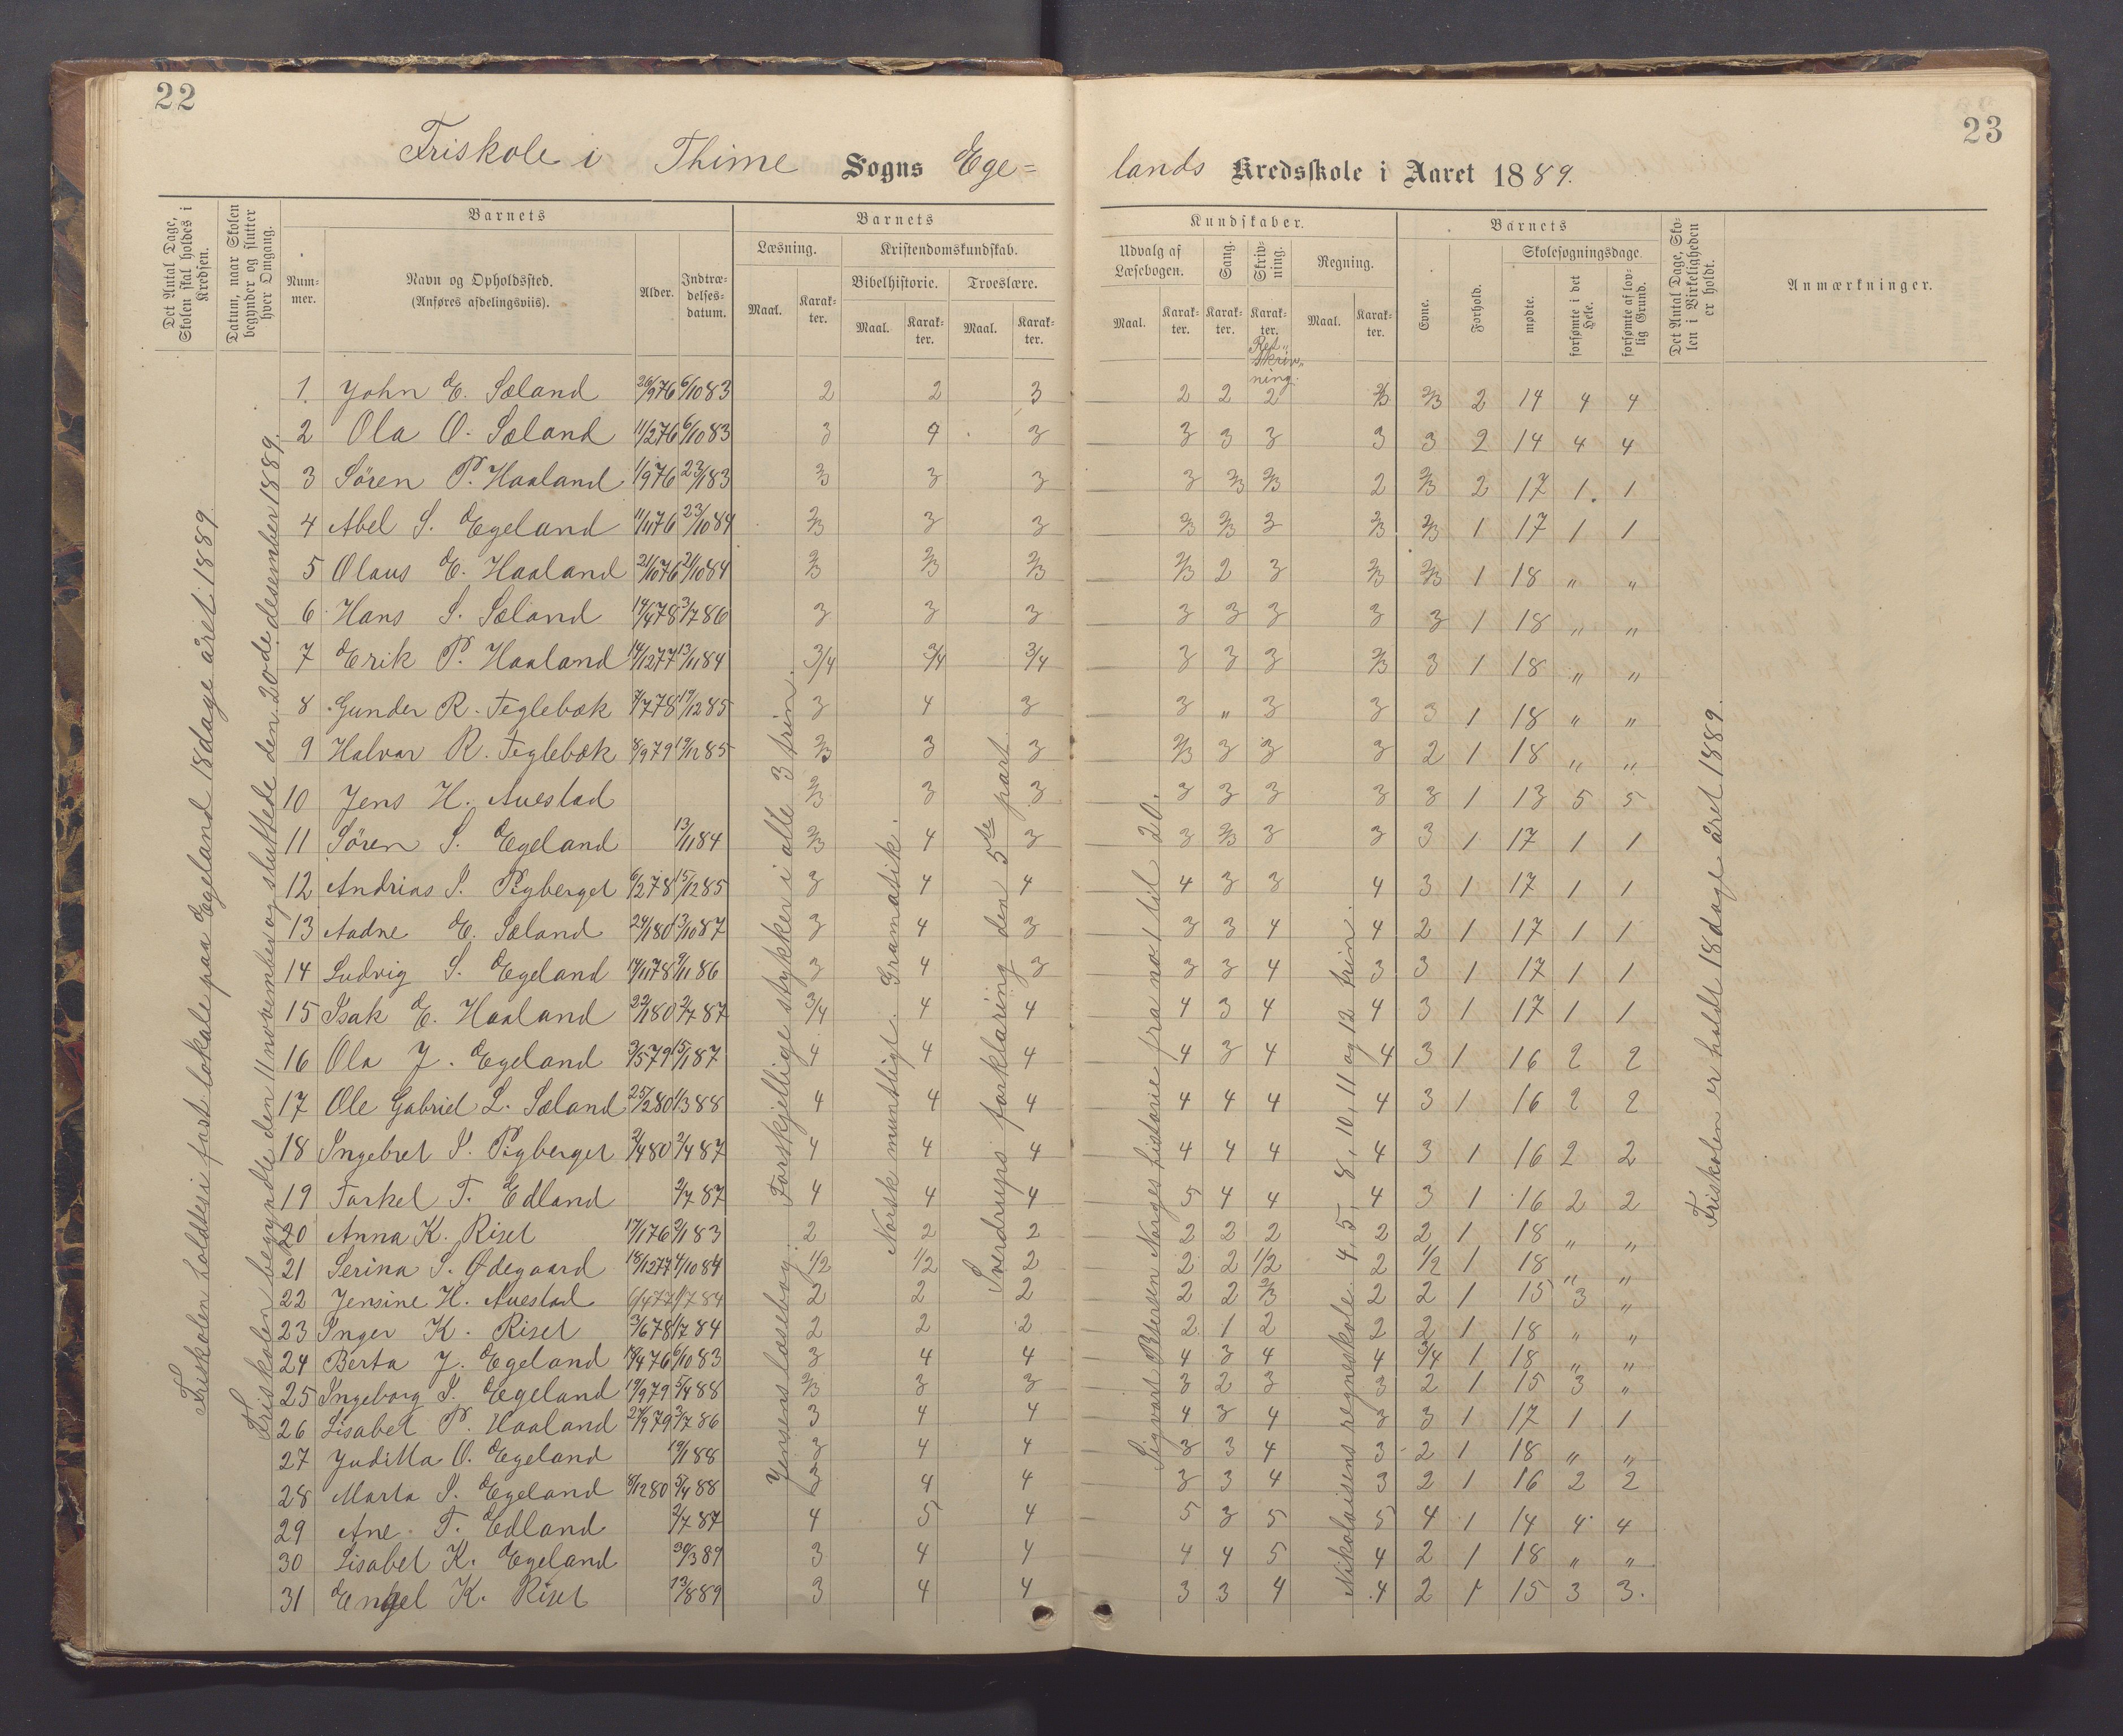 22
23
Friskole i Thime Sogns Ege=
lands Kredsskole i Aaret 1889.
Det Antal Dage, Skolen skal holdes i Kredsen.
Datum, naar Skolen begynder og slutter hver Omgang.
Barnets
Num-mer.
Navn og Opholdssted.
(Anføres afdelingsviis).
Alder.
Indtræ-delses-datum.
Barnets
Læsning.
Kristendomskundskab.
Bibelhistorie.
Troeslære.
Maal.
Karak-ter.
Maal.
Karak-ter.
Maal.
Karak-ter.
Kundskaber.
Udvalg af Læsebogen.
Sang.
Skriv-ning.
Regning.
Maal.
Karak-ter.
Karak-ter.
Karak-ter.
Maal.
Karak-ter.
Ret„ skriv„ ning.
Barnets
Evne.
Forhold.
Skolesøgningsdage.
mødte.
forsømte i det Hele.
forsømte af lov-lig Grund.
Det Antal Dage, Sko-len i Virkeligheden er holdt.
Anmærkninger.
Friskolen holdtes i fast lokale paa Egeland 18 dage året 1889.
Friskolen begyndte den 11 november og sluttede den 20de desember 1889.
Jensens læsebog. Forskjellige stykker i alle 3 trin.
Norsk muntligt. Gramatik.
Sverdrups forklaring den 5te part.
Sigvart Petersen Norges historie fra no 1 til 20.
Nikolaisens regneskole. 4, 5, 8, 10, 11 og 12 trin.
Friskolen er holdt 18 dage året 1889.
1 John E. Sæland 26/9 76 6/10 83 2 2 3 2 2 2 2/3 2/3 2 14 4 4
2 Ola O. Sæland 11/2 76 6/10 83 3 4 3 3 3 3 3 3 2 14 4 4
3 Søren P. Haaland 1/9 76 23/1 83 2/3 3 3 3 2/3 2/3 2 2/3 2 17 1 1
4 Abel S. Egeland 11/11 76 23/10 84 2/3 3 3 2/3 2/3 3 2/3 2/3 1 17 1 1
5 Olaus E. Haaland 21/10 76 21/10 84 2/3 2/3 2/3 2/3 2 3 2/3 2/3 1 18 „ „
6 Hans S. Sæland 14/4 78 3/7 86 3 3 3 3 3 3 3 3 1 18 „ „
7 Erik P. Haaland 14/12 77 13/11 84 3/4 3/4 3/4 3 3 3 2/3 3 1 18 „ „
8 Gunder R. Teglebæk 7/7 78 19/12 85 3 4 3 3 „ 3 3 3 1 18 „ „
9 Halvar R. Teglebæk 8/9 79 19/12 85 2/3 3 3 2/3 3 3 3 2 1 18 „ „
10 Jens H. Auestad 2/3 3 3 3 3 3 3 3 1 13 5 5
11 Søren S. Egeland 13/11 84 2/3 4 3 3 2/3 3 3 3 1 17 1 1
12 Andrias S. Rygberget 6/2 78 15/12 85 3 4 4 4 3 3 4 3 1 17 1 1
13 Aadne E. Sæland 24/1 80 13/10 87 3 4 3 3 3 4 4 2 1 17 1 1
14 Ludvig S. Egeland 17/11 78 9/11 86 3 4 3 3 3 4 3 3 1 17 1 1
15 Isak E. Haaland 22/1 80 2/7 87 3/4 4 4 4 3 4 4 3 1 17 1 1
16 Ola J. Egeland 3/5 79 15/1 87 4 4 4 4 3 4 4 3 1 16 2 2
17 Ole Gabriel L. Sæland 25/2 80 1/3 88 4 4 4 4 4 4 4 3 1 16 2 2
18 Ingebret S. Rygberget 2/4 80 2/4 87 4 4 4 4 4 4 4 3 1 16 2 2
19 Torkel T. Edland 2/7 87 4 4 4 5 4 4 4 3 1 16 2 2
20 Anna K. Riset 17/1 76 2/1 83 2 2 2 2 2 2 2 2 1 18 „ „
21 Serina S. Ødegaard 18/12 77 4/10 84 1/2 1/2 2 2 2 1/2 2 1/2 1 18 „ „
22 Jensine H. Auestad 6/4 77 1/7 84 2 2 2 2 2 2/3 2 2 1 15 3 „
23 Inger K. Riset 3/6 78 1/7 84 2 2 2 2 1 2 2 2 1 18 „ „
24 Berta J. Egeland 18/4 76 6/10 83 3 4 4 4 3 4 4 3/4 1 18 „ „
25 Ingeborg S. Egeland 19/9 79 5/4 88 2/3 3 3 3 2 3 3 2 1 15 3 „
26 Lisabet P. Haaland 27/9 79 3/7 86 3 4 4 4 3 4 3 3 1 17 1 1
27 Juditta O. Egeland 19/1 88 3 4 4 3 3 4 3 2 1 18 „ „
28 Marta S. Egeland 8/12 80 5/4 88 3 4 4 3 3 4 3 2 1 16 2 2
29 Ane T. Edland 2/7 87 4 5 4 5 3 5 5 4 1 14 4 4
30 Lisabet K. Egeland 30/3 89 3 4 4 4 4 5 4 2 1 18 „ „
31 Engel K. Riset 13/8 89 3 4 4 3 3 4 4 2 1 15 3 3.